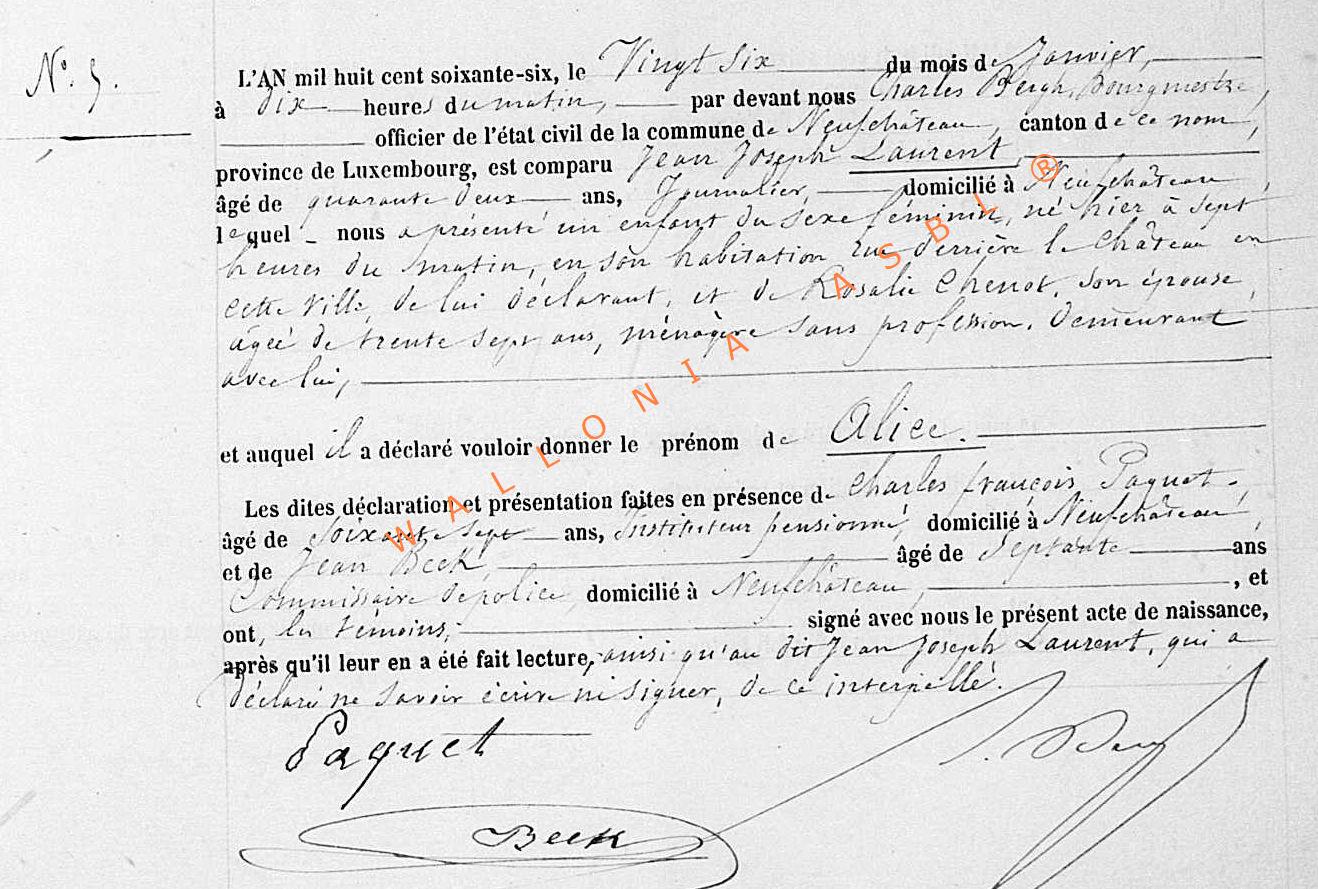 N° 5.
L'AN mil huit cent soixante-six, le Vingt six du mois de Janvier,
à Dix heures du matin, par devant nous Charles Bergh, Bourgmestre,
officier de l'état civil de la commune de Neufchâteau, canton de ce nom,
province de Luxembourg, est comparu Jean Joseph Laurent,
âgé de quarante deux ans, Journalier, domicilié à Neufchâteau,
lequel nous a présenté un enfant du sexe féminin, né hier à sept
heures du matin, en son habitation rue derrière le Château en
cette ville, de lui déclarant, et de Rosalie Chenot, son épouse,
âgée de trente sept ans, ménagère sans profession, demeurant
avec lui,
et auquel il a déclaré vouloir donner le prénom de Alice.
Les dites déclaration et présentation faites en présence de Charles françois Paquet,
âgé de soixante sept ans, Instituteur pensionné, domicilié à Neufchâteau,
et de Jean Beck, âgé de septante ans
Commissaire de police, domicilié à Neufchâteau, , et
ont, les témoins, signé avec nous le présent acte de naissance,
après qu'il leur en a été fait lecture, ainsi qu'au dit Jean Joseph Laurent, qui a
déclaré ne savoir écrire ni signer, de ce interpellé.
Paquet
Beck
WALLONIA ASBL ®